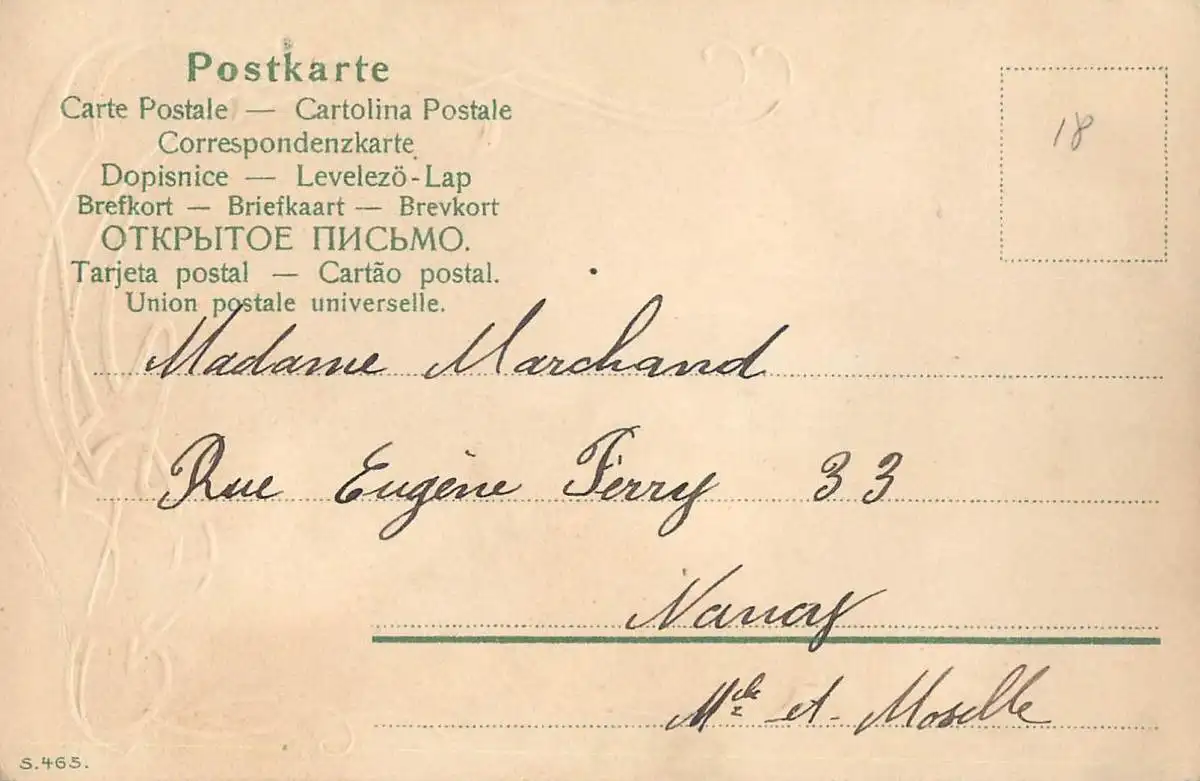 Postkarte
Carte Postale — Cartolina Postale
Correspondenzkarte
Dopisnice — Levelező-Lap
Brefkort — Briefkaart — Brevkort
ОТКРЫТОЕ ПИСЬМО.
Tarjeta postal — Cartão postal.
Union postale universelle.
18
Madame Marchand
Rue Eugène Ferry 33
Nancy
Mthe et Moselle
S.465.